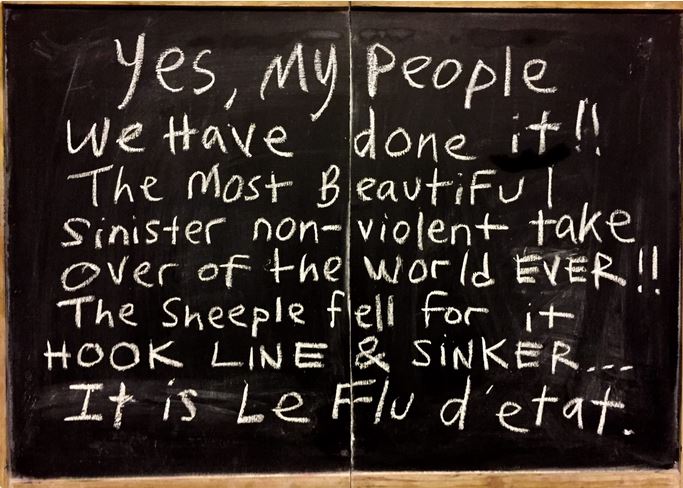 Yes, My People
We Have done it!!
The Most Beautiful
Sinister non-violent take
over of the World EVER!!
The Sheeple fell for it
HOOK LINE & SiNKER...
It is Le Flu d'etat.